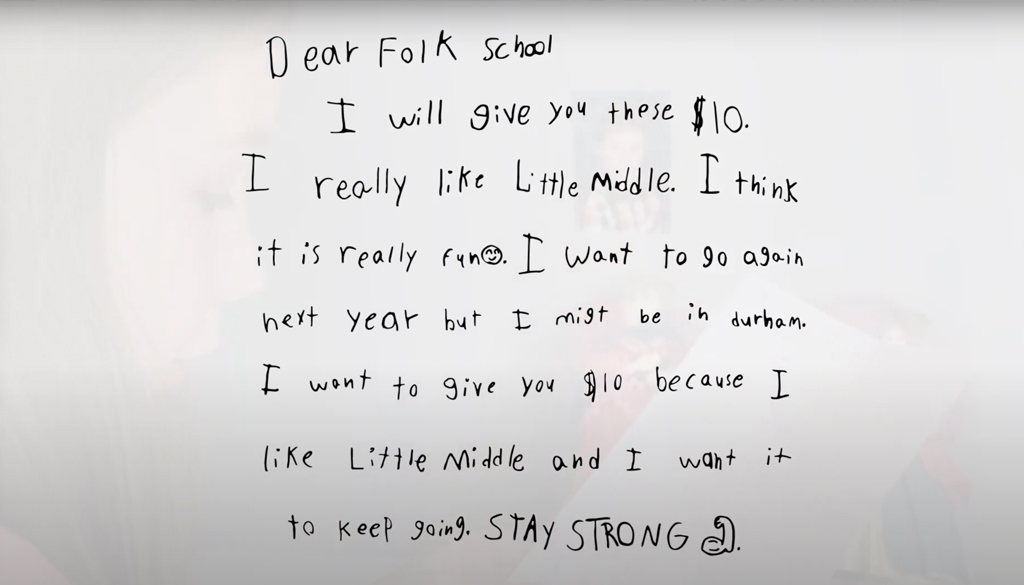 Dear Folk School
I will give you these $10.
I really like Little Middle. I think
it is really fun☺. I want to go again
next year but I migt be in durham.
I want to give you $10 because I
like Little Middle and I want it
to keep going. STAY STRONG